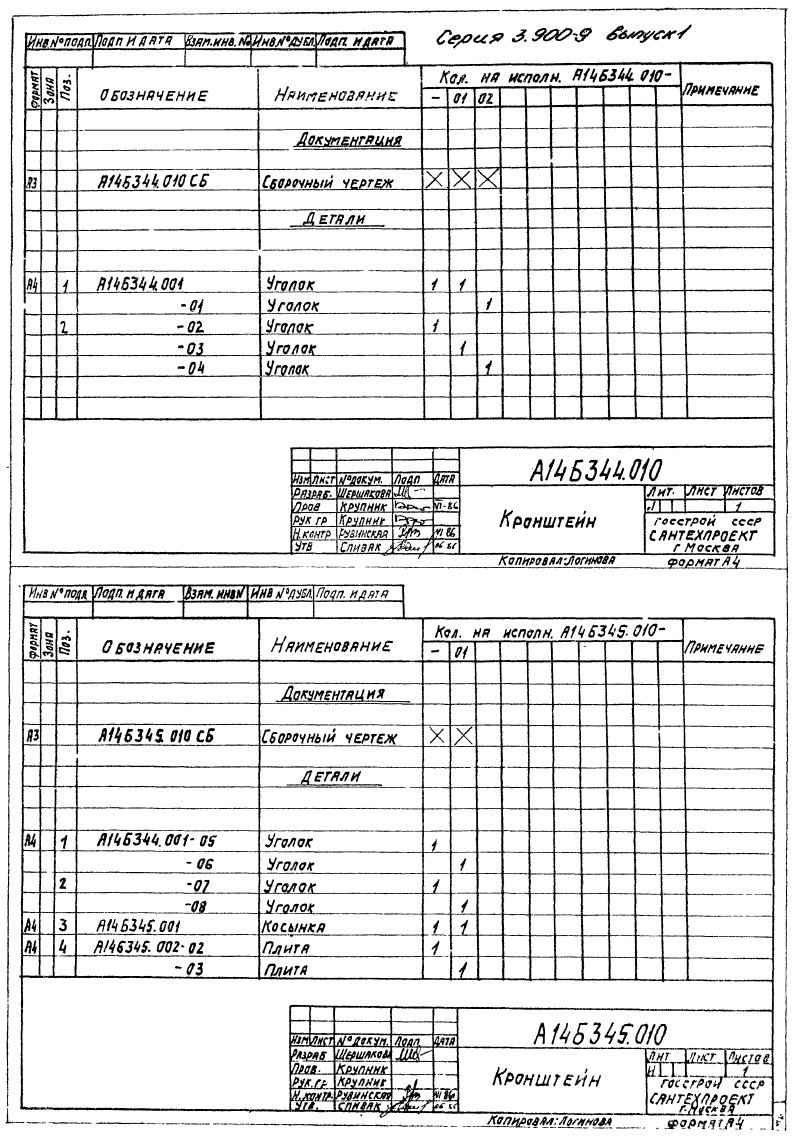 Серия 3.900-9 выпуск 1
Инв № подл. Подп и дата Взам. инв. № Инв № дубл Подп. и дата
Формат Зона Поз. Обозначение Наименование Кол. на исполн. А14Б344.010- Примечание
- 01 02
Документация
А3 А14Б344.010 СБ Сборочный чертеж X X X
Детали
А4 1 А14Б344.001 Уголок 1 1
-01 Уголок 1
2 -02 Уголок 1
-03 Уголок 1
-04 Уголок 1
А14Б344.010
Изм Лист № докум. Подп Дата
Разраб. Шершакова
Пров Крупник VI-86
Рук гр Крупник
Н.контр Рувинская VI 86
Утв Спивак
Кронштейн
Лит. Лист Листов
1
Госстрой СССР
Сантехпроект
г Москва
Копировал: Логинова Формат А4
Инв № подл Подп. и дата Взам. инв № Инв № дубл Подп. и дата
Формат Зона Поз. Обозначение Наименование Кол. на исполн. А14Б345.010- Примечание
- 01
Документация
А3 А14Б345.010 СБ Сборочный чертеж X X
Детали
А4 1 А14Б344.001-05 Уголок 1
-06 Уголок 1
2 -07 Уголок 1
-08 Уголок 1
А4 3 А14Б345.001 Косынка 1 1
А4 4 А14Б345.002-02 Плита 1
-03 Плита 1
А14Б345.010
Изм Лист № докум. Подп Дата
Разраб Шершакова
Пров. Крупник
Рук. гр Крупник
Н. контр. Рувинская VI 86
Утв. Спивак
Кронштейн
Лит Лист Листов
И 1
Госстрой СССР
Сантехпроект
г. Москва
Копировал: Логинова Формат А4